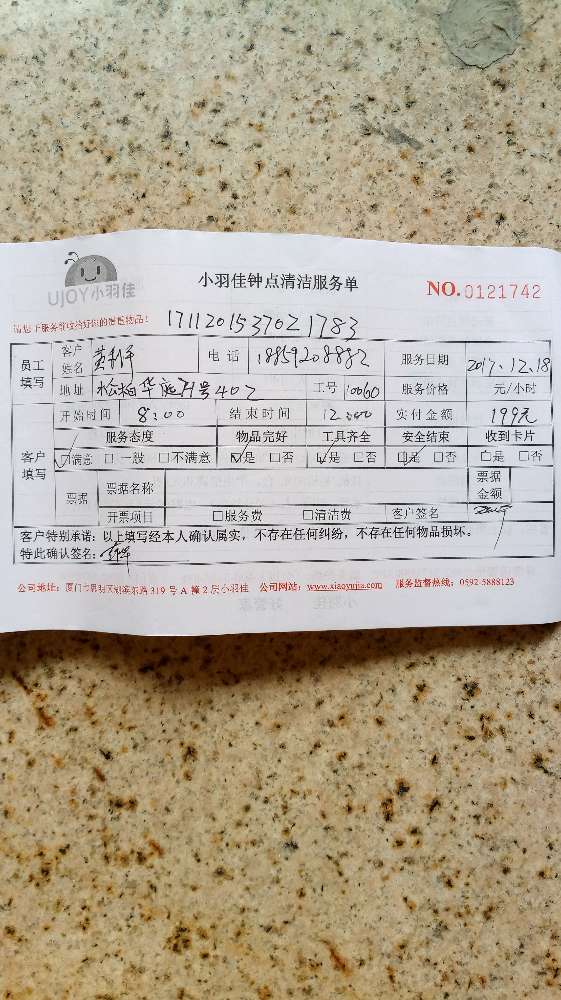 UJOY小羽佳
小羽佳钟点清洁服务单
NO.0121742
1711201537021783
员工填写 客户姓名 电话 18859208882 服务日期 2017.12.18
地址 松柏华庭 号402 工号 10060 服务价格 元/小时
开始时间 8:00 结束时间 12:00 实付金额 199元
客户填写 服务态度 物品完好 工具齐全 安全结束 收到卡片
☑满意 □一般 □不满意 ☑是 □否 ☑是 □否 ☑是 □否 □是 □否
票据 票据名称 票据金额
开票项目 □服务费 □清洁费 客户签名
客户特别承诺:以上填写经本人确认属实,不存在任何纠纷,不存在任何物品损坏。
特此确认签名:
公司地址:厦门市思明区湖滨东路319号A幢2层小羽佳 公司网站:www.xiaoyujia.com 服务监督热线:0592-5888123